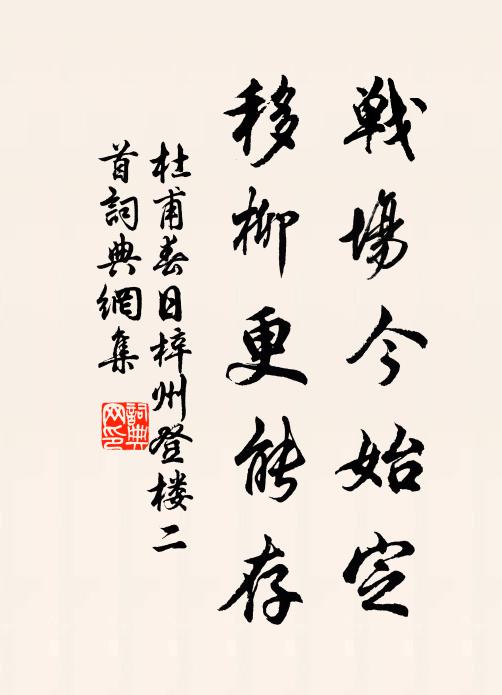 戦場今始定
移柳更能存
杜甫春日梓州登楼二
首詞典網集
詞典网印